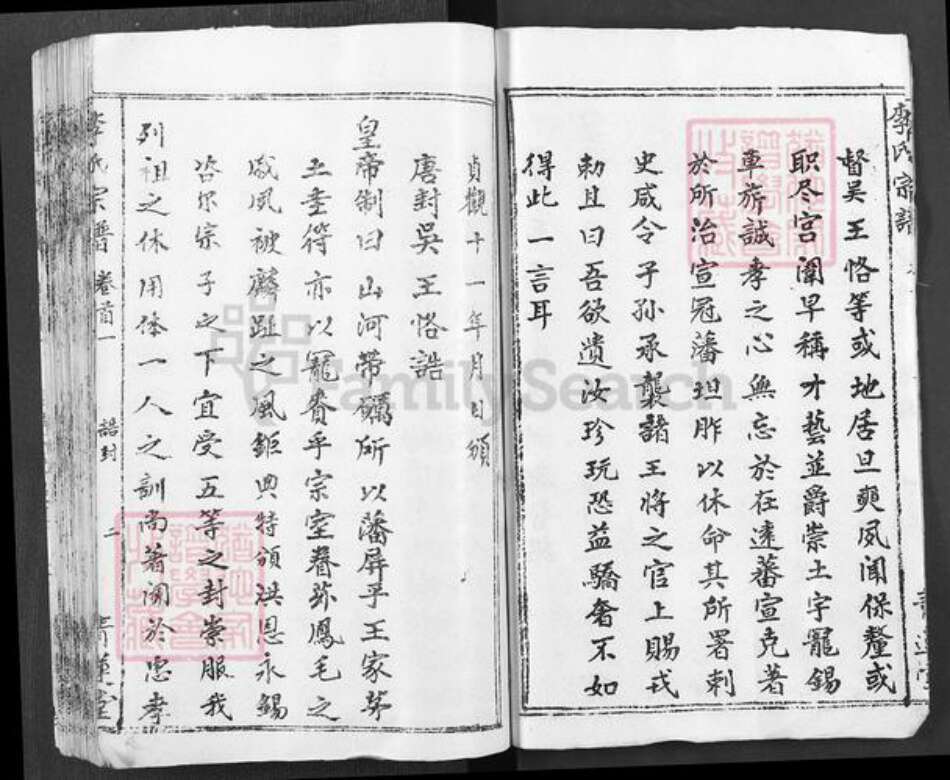 李氏宗譜
督吴王恪等或地居旦奭夙闻保釐或
职尽宫闈早稱才藝並爵崇土宇寵錫
車旂誠孝之心無忘於在逺蕃宣克著
於所治宣冠藩垣胙以休命其所署刺
史咸令子孫承襲諸王將之官上賜戎
勅且曰吾欲遗汝珍玩恐益驕奢不如
得此一言耳
貞觀十一年月日頒
唐封吳王恪誥
皇帝制曰山河带礪所以藩屏乎王家茅
土圭符亦以寵賚乎宗室眷茲鳳毛之
咸夙被麟趾之風鉅典特頒洪恩永錫
咨尔宗子之下宜受五等之封崇服我
列祖之休用体一人之訓尚著闻於忠孝
李氏宗普 卷首一 誥封 二 堂
FamilySearch